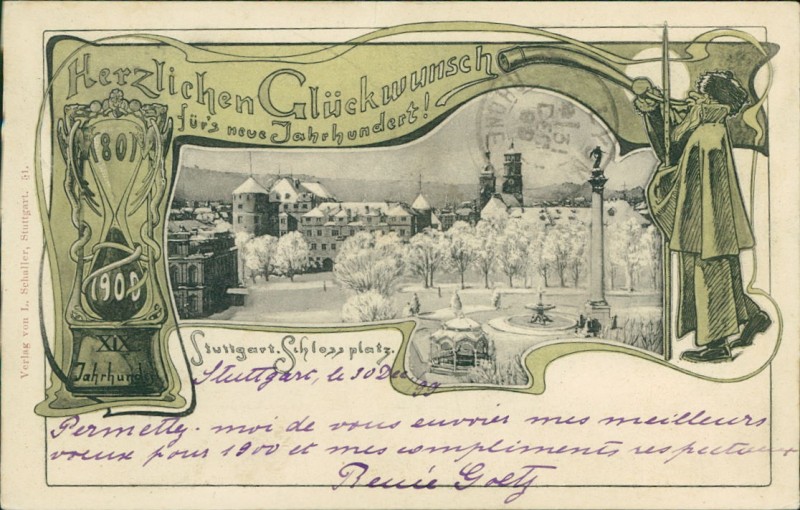 Herzlichen Glückwunsch
für's neue Jahrhundert!
1801
1900
XIX
Jahrhundert
Stuttgart. Schlossplatz.
Verlag von L. Schaller, Stuttgart. 51.
31
DEC
99
RHONE
Stuttgart, le 30 Dec 99
Permettez-moi de vous envoier mes meilleurs
voeux pour 1900 et mes compliments respectueux
Renée Goetz